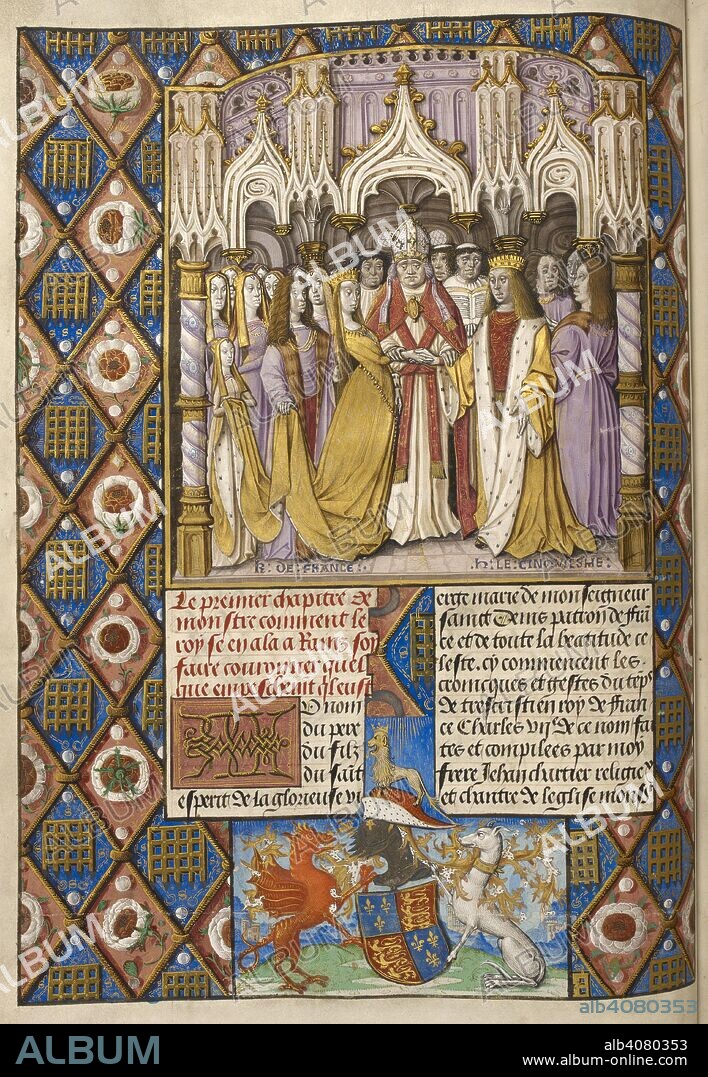 K · DE · FRANCE ·
H · LE · CINQVISME ·
Le premier chapitre de
monstre comment le
roy se en ala a Rains soy
faire couronner quel
que empeschent q̃ leust
U nom
du pere
du filz
du sait
esperit de la glorieuse vi
erge marie de mon seigneur
sainct Denis patron de frã
ce et de toute la beatitude ce
leste. cy commencent les
cronicques et gestes du tẽps
de trescrestien roy de fran
ce Charles viiᵉ de ce nom fai
tes et compilees par moy
frere Jehan chartier religieˣ
et chantre de leglise mons
ALBUM
alb4080353
ALBUM
alb4080353
album-online.com